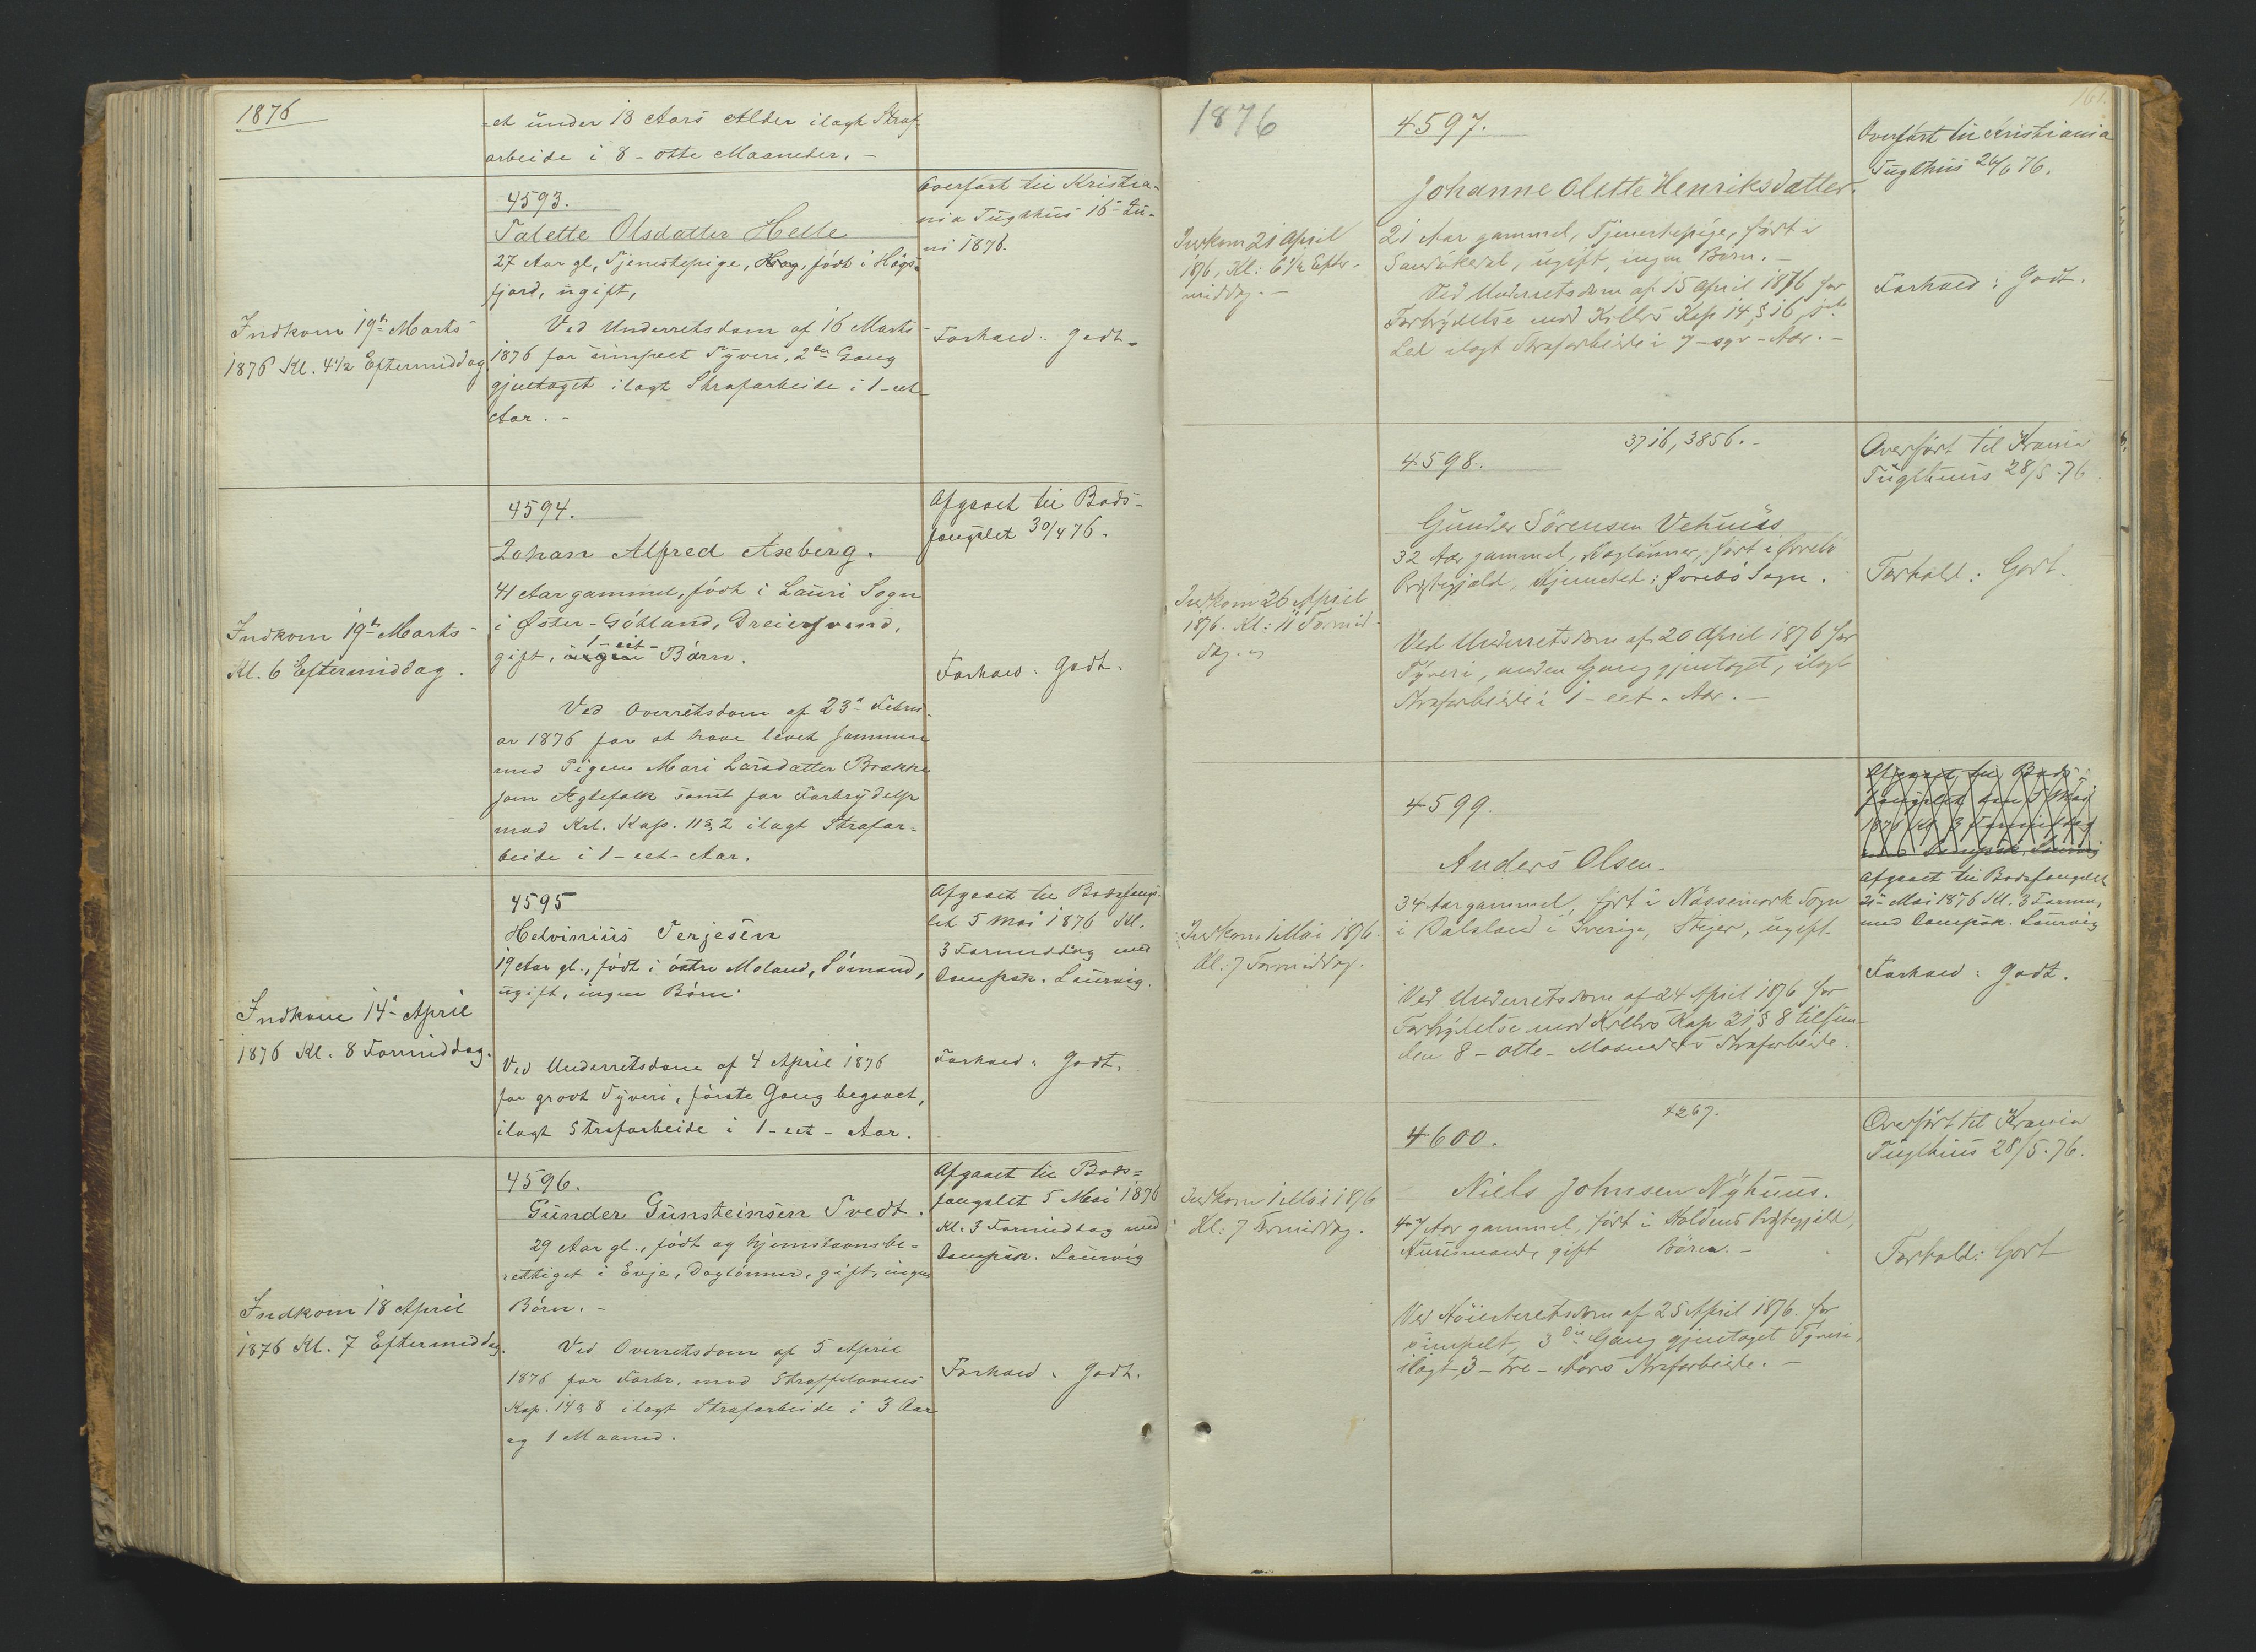 1876
-et under 18 Aars Alder ilagt Straf-
arbeide i 8 - otte Maaneder. -
4593.
Talette Olsdatter Helle
27 Aar gl, Tjenestepige, født i Høgs-
fjord, ugift,
Ved Underretsdom af 16 Marts
1876 for simpelt Tyveri, 2den Gang
gjentaget ilagt Strafarbeide i 1 - eet
Aar. -
Indkom 19de Marts
1876 Kl. 4 1/2 Eftermiddag
Overført til Kristia-
nia Tugthus 16de Ju-
ni 1876.
Forhold: Godt.
4594.
Johan Alfred Axeberg.
41 Aar gammel, født i Lauri Sogn
i Øster-Götland, Dreiersvend,
1 - eet -
gift, ingen Børn.
Ved Overretsdom af 23de Febru-
ar 1876 for at have levet sammen
med Pigen Mari Larsdatter Brække
som Ægtefolk samt for Forbrydelse
mod Krl. Kap. 11 § 2 ilagt Strafar-
beide i 1 - eet - Aar.
Indkom 19de Marts
Kl. 6 Eftermiddag.
Afgaaet til Bods-
fængslet 30/4 76.
Forhold: Godt.
4595
Helvinius Terjesen
19 Aar gl., født i østre Moland, Sømand,
ugift, ingen Børn.
Ved Underretsdom af 4 April 1876
for grovt Tyveri, første Gang begaaet,
ilagt Strafarbeide i 1 - eet - Aar.
Indkom 14de April
1876 Kl. 8 Formiddag.
Afgaaet til Bodsfængs-
let 5 Mai 1876 Kl.
3 Formiddag med
Dampsk. Laurvig.
Forhold: Godt.
4596.
Gunder Gunsteinsen Tvedt.
29 Aar gl., født og hjemstavnsbe-
rettiget i Evje, Daglønner, gift, ingen
Børn. -
Ved Overretsdom af 5 April
1876 for Forbr. mod Straffelovens
Kap. 14 § 8 ilagt Strafarbeide i 3 Aar
og 1 Maaned.
Indkom 18 April
1876 Kl. 7 Eftermiddag.
Afgaaet til Bods-
fængslet 5 Mai 1876
Kl. 3 Formiddag med
Dampsk. Laurvig
Forhold: Godt.
1876
161.
4597.
Johanne Olette Henriksdatter.
21 Aar gammel, Tjenestepige, født i
Sandøkedal, ugift, ingen Børn. -
Ved Underretsdom af 15 April 1876 for
Forbrydelse mod Krllvs Kap 14 § 16
Led ilagt Strafarbeide i 7 - syv - Aar. -
Indkom 21 April
1876, Kl: 6 1/2 Efter-
middag. -
Overført til Kristiania
Tugthus 26/6 76.
Forhold: Godt.
3716, 3856. -
4598.
Gunder Sørensen Vehuus
32 Aar gammel, Daglønner, født i Øvrebø
Prstegjeld, Hjemsted: Øvrebø Sogn.
Ved Underretsdom af 20 April 1876 for
Tyveri, anden Gang gjentaget, ilagt
Strafarbeide i 1 - eet - Aar. -
Indkom 26 April
1876. Kl: 11 Formid-
dag.
Overført til Krania
Tugthuus 28/5 -76.
Forhold: Godt.
4599.
Anders Olsen.
34 Aar gammel, født i Nössemark Sogn
i Dalsland i Sverige, Steier, ugift.
Ved Underretsdom af 24 April 1876 for
Forbrydelse mod Krllvs Kap 21 § 8 tilfun-
den 8 - otte - Maaneders Strafarbeide.
Indkom 1 Mai 1876.
Kl: 7 Formiddag.
Afgaaet til Bods-
fængslet den 5 Mai
1876 Kl. 3 Formiddag
med Dampsk. Laurvig
Afgaaet til Bodsfængslet
Mai 1876 Kl. 3 Form.
med Dampsk. Laurvig
Forhold: Godt.
4267.
4600.
Niels Johnsen Nyhuus.
47 Aar gammel, født i Holdens Prstegjeld,
Huusmand, gift Børn. -
Ved Høiesteretsdom af 25 April 1876 for
simpelt, 3die Gang gjentaget Tyveri,
ilagt 3 - tre - Aars Strafarbeide. -
Indkom 1 Mai 1876
Kl: 7 Formiddag.
Overført til Krania
Tugthuus 28/5 -76.
Forhold: Godt